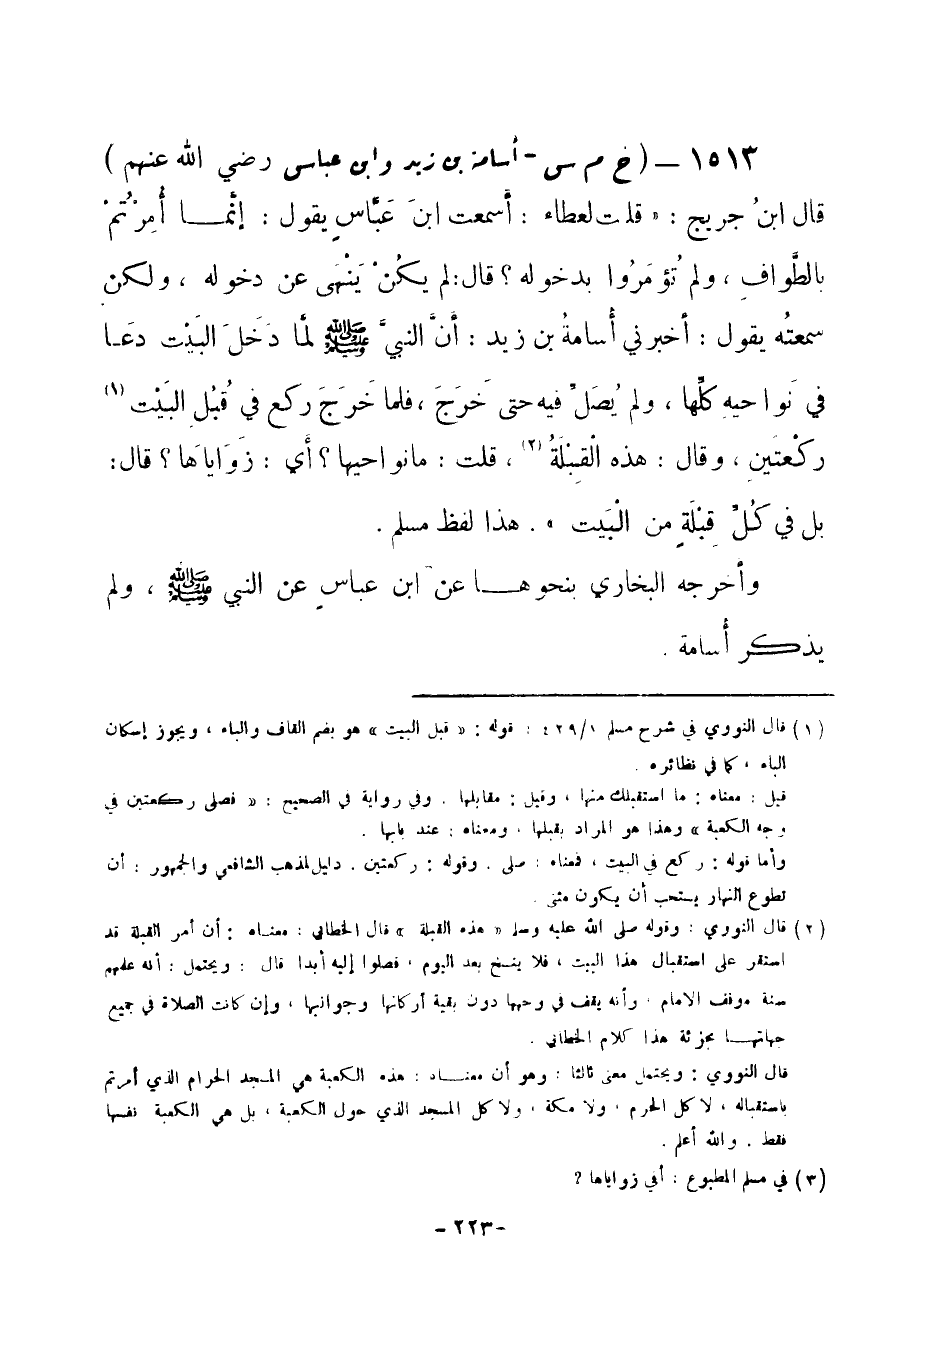 ١٥١٣ – ( خ م س - أسامة بن زيد وابن عباس رضي الله عنهم )
قال ابنُ جريج : « قلت لعطاء : أَسمعت ابنَ عَبَّاسٍ يقول : إنَّمـــا أُمِرْتُمْ
بالطَّوافِ ، ولم تُؤمَرُوا بدخوله ؟ قال : لم يكُنْ يَنْهَى عن دخوله ، ولكن
سمعتُه يقول : أخبرني أُسامةُ بن زيد : أَنَّ النبيَّ ﷺ لَّما دَخَلَ البَيْت دعَــا
في نَواحيهِ كلِّها ، ولم يُصَلِّ فيه حتى خَرَجَ ، فلما خَرَجَ ركع في قُبُلِ البَيْت (١)
ركْعتَينِ ، وقال : هذه الْقِبْلَةُ (٢) ، قلت : ما نواحيها ؟ أَي : زَوَاياَها ؟ قال :
بل في كُلِّ قِبْلَةٍ من الْبَيت » . هذا لفظ مسلم .
وأَخرجه البخاري بنحوهـــا عن ابن عباسٍ عن النبي ﷺ ، ولم
يذكر أُسامة .
(١) قال النووي في شرح مسلم ٤٢٩/١ : قوله : « قبل البيت » هو بضم القاف والباء ، ويجوز إسكان
الباء ، كما في نظائره .
قيل : معناه : ما استقبلك منها ، وقيل : مقابلها . وفي رواية في الصحيح : « فصلى ركعتين في
وجه الكعبة » وهذا هو المراد بقبلها ، ومعناه : عند بابها .
وأما قوله : ركع في البيت ، فمعناه : صلى . وقوله : ركعتين . دليل لمذهب الشافعي والجمهور : أن
تطوع النهار يستحب أن يكون مثنى .
(٢) قال النووي : وقوله صلى الله عليه وسلم « هذه القبلة » قال الخطابي : معنـاه : أن أمر القبلة قد
استقر على استقبال هذا البيت ، فلا ينسخ بعد اليوم ، فصلوا إليه أبدا قال : ويحتمل : أنه علمهم
سنة موقف الامام ، وأنه يقف في وجهها دون بقية أركانها وجوانبها ، وإن كانت الصلاة في جميع
جهاتهـــا مجزئة هذا كلام الخطابي .
قال النووي : ويحتمل معنى ثالثا : وهو أن معنـــاه : هذه الكعبة هي المسجد الحرام الذي أمرتم
باستقباله ، لا كل الحرم ، ولا مكة ، ولا كل المسجد الذي حول الكعبة ، بل هي الكعبة نفسها
فقط . والله أعلم .
(٣) في مسلم المطبوع : أفي زواياها ؟
- ٢٢٣ -